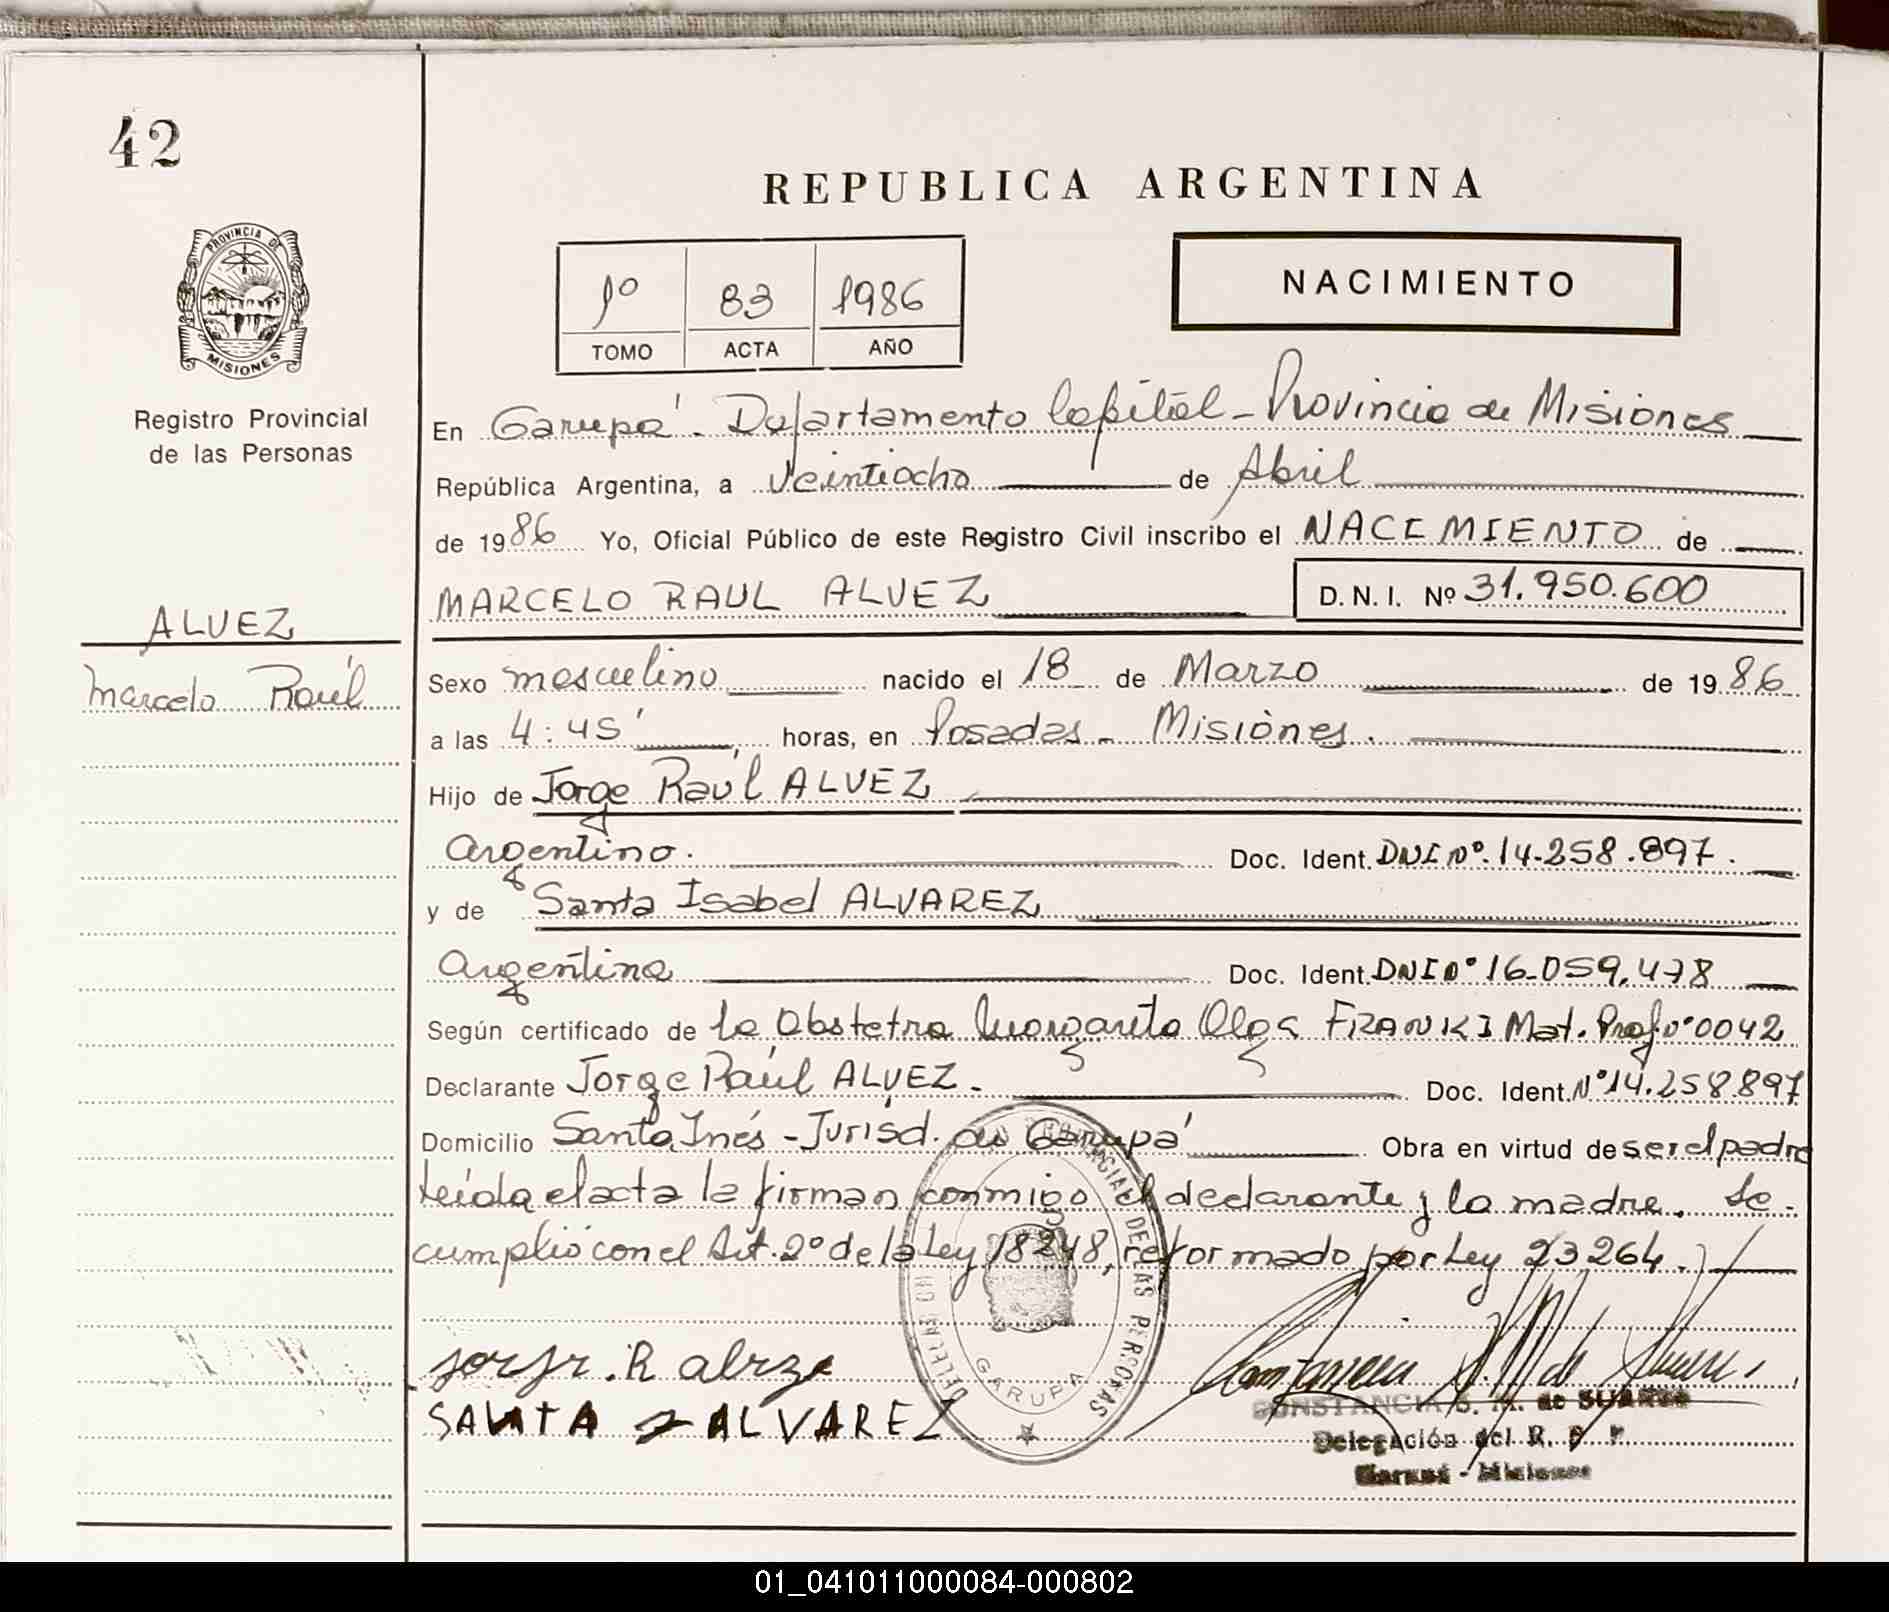 42
REPUBLICA ARGENTINA
PROVINCIA DE
MISIONES
Registro Provincial
de las Personas
1º 83 1986
TOMO ACTA AÑO
NACIMIENTO
En Garupá - Departamento Capital - Provincia de Misiones
República Argentina, a veintiocho de Abril
de 1986 Yo, Oficial Público de este Registro Civil inscribo el NACIMIENTO de
MARCELO RAUL ALVEZ D.N.I. Nº 31.950.600
ALVEZ
Marcelo Raúl
Sexo masculino nacido el 18 de Marzo de 1986
a las 4:45' horas, en Posadas - Misiones.
Hijo de Jorge Raúl ALVEZ
argentino. Doc. Ident. DNI Nº. 14-258.897.
y de Santa Isabel ALVAREZ
argentina Doc. Ident. DNI Nº 16-059.478
Según certificado de la Obstetra Margarita Olga FRANKI Mat. Prof. Nº 0042
Declarante Jorge Raúl ALVEZ. Doc. Ident. Nº 14.258.897
Domicilio Santa Inés - Jurisd. de Garupá Obra en virtud de ser el padre
leída el acta la firman conmigo el declarante y la madre. Se
cumplió con el Art. 2º de la Ley 18248, reformado por Ley 23264.
PROVINCIAL DE LAS PERSONAS
GARUPA
jorjr. R alvze
SANTA I ALVAREZ
CONSTANCIA S. M. de SUAREZ
Delegación del R. P. P.
Garupá - Misiones
01_041011000084-000802